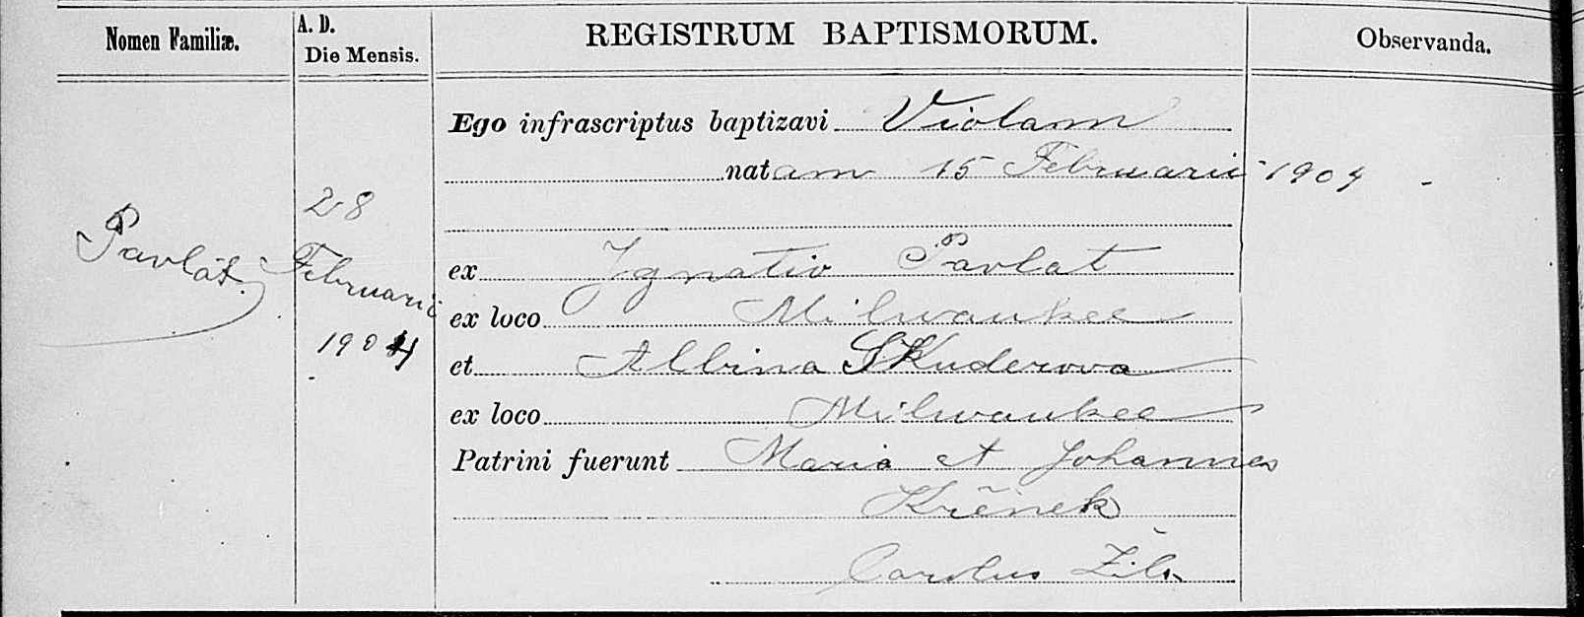 Nomen Familiæ.
A. D.
Die Mensis.
REGISTRUM BAPTISMORUM.
Observanda.
Pavlát.
28
Februarii
1904
Ego infrascriptus baptizavi Violam
natam 15 Februarii 1904
ex Ignatio Pavlat
ex loco Milwaukee
et Albina SKuderova
ex loco Milwaukee
Patrini fuerunt Maria et Johannes
Křenek
Carolus